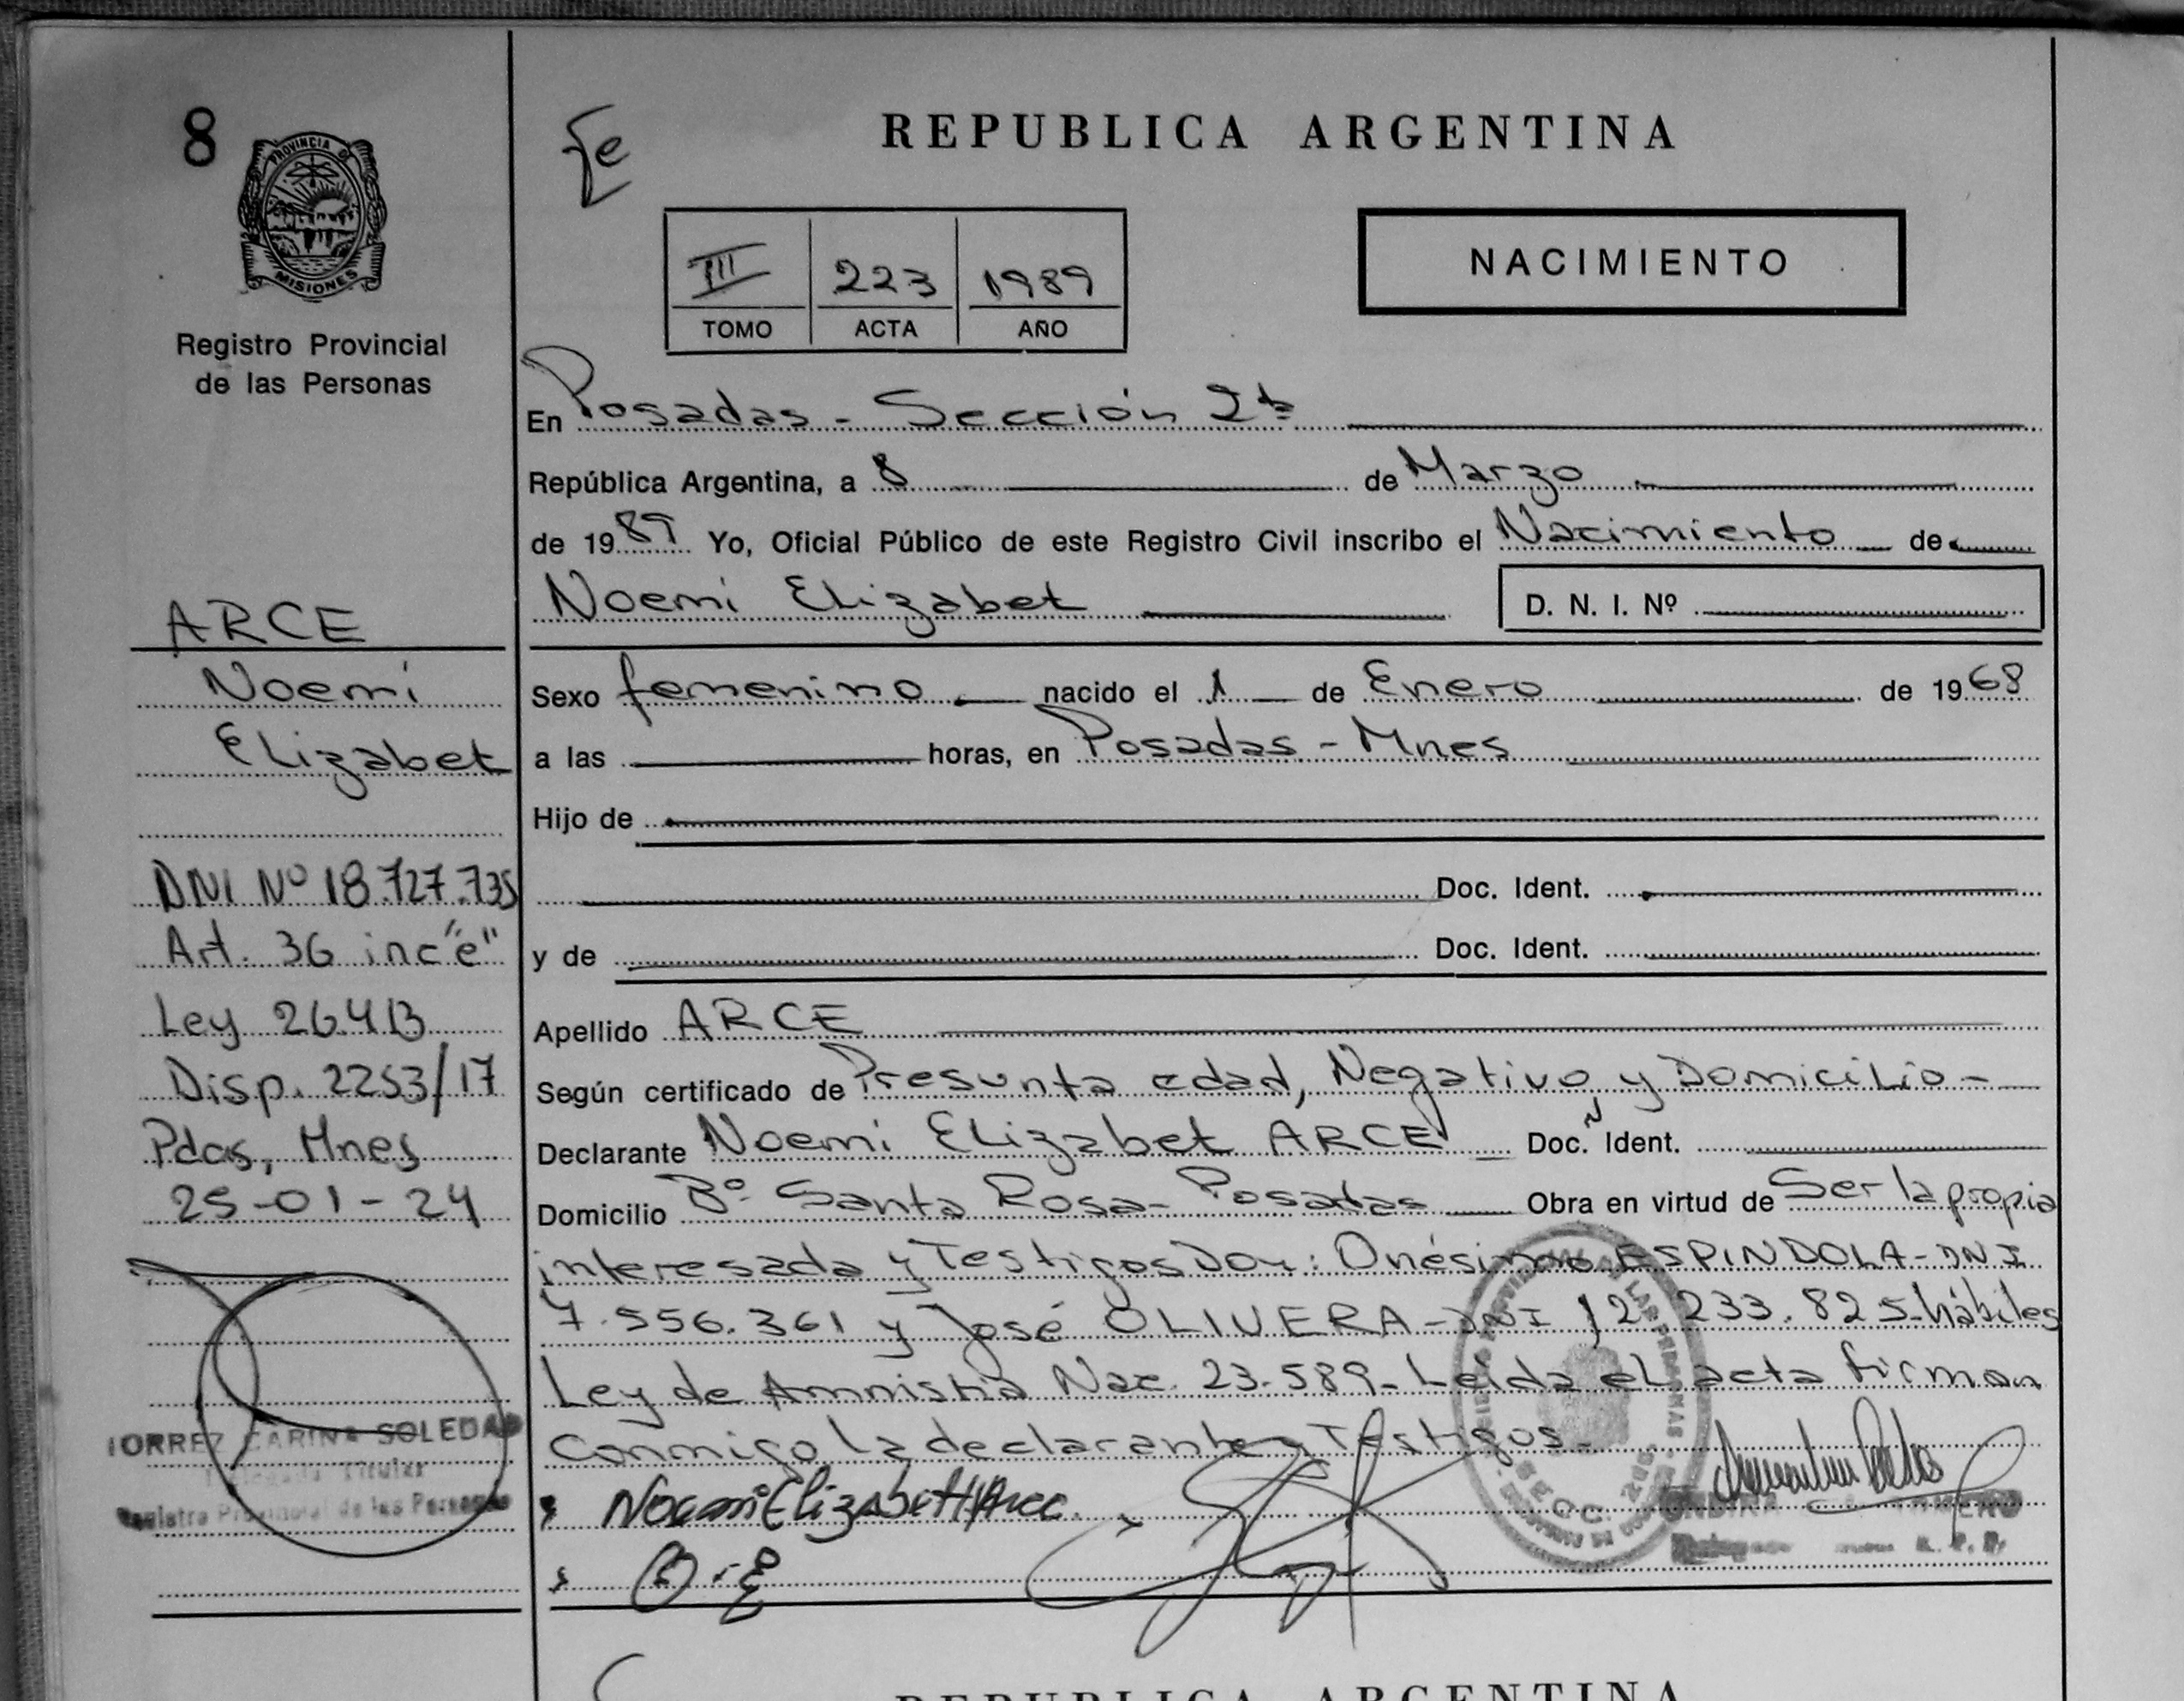 8
PROVINCIA DE
MISIONES
Registro Provincial
de las Personas
ARCE
Noemí
Elizabet
DNI Nº 18.727.735
Art. 36 inc "e"
Ley 26413
Disp. 2253/17
Pdas, Mnes
25-01-24
TORREZ CARINA SOLEDAD
Delegada Titular
Registro Provincial de las Personas
REPUBLICA ARGENTINA
III 223 1989
TOMO ACTA AÑO
NACIMIENTO
En Posadas - Sección 2ª
República Argentina, a 8 de Marzo
de 1989 Yo, Oficial Público de este Registro Civil inscribo el Nacimiento de
Noemí Elizabet D. N. I. Nº
Sexo femenino nacido el 1 de Enero de 1968
a las horas, en Posadas - Mnes
Hijo de
Doc. Ident.
y de Doc. Ident.
Apellido ARCE
Según certificado de Presunta edad, Negativo y Domicilio -
Declarante Noemí Elizabet ARCE Doc. Ident.
Domicilio Bº Santa Rosa - Posadas Obra en virtud de Ser la propia
interesada y Testigos Don: Onésimo ESPINDOLA - DNI
7.556.361 y José OLIVERA - DNI 12.233.825 - hábiles
Ley de Amnistía Nac. 23.589 - Leída el acta firman
conmigo la declarante y Testigos -
Noemi Elizabeth Arce
O. E
REPUBLICA ARGENTINA